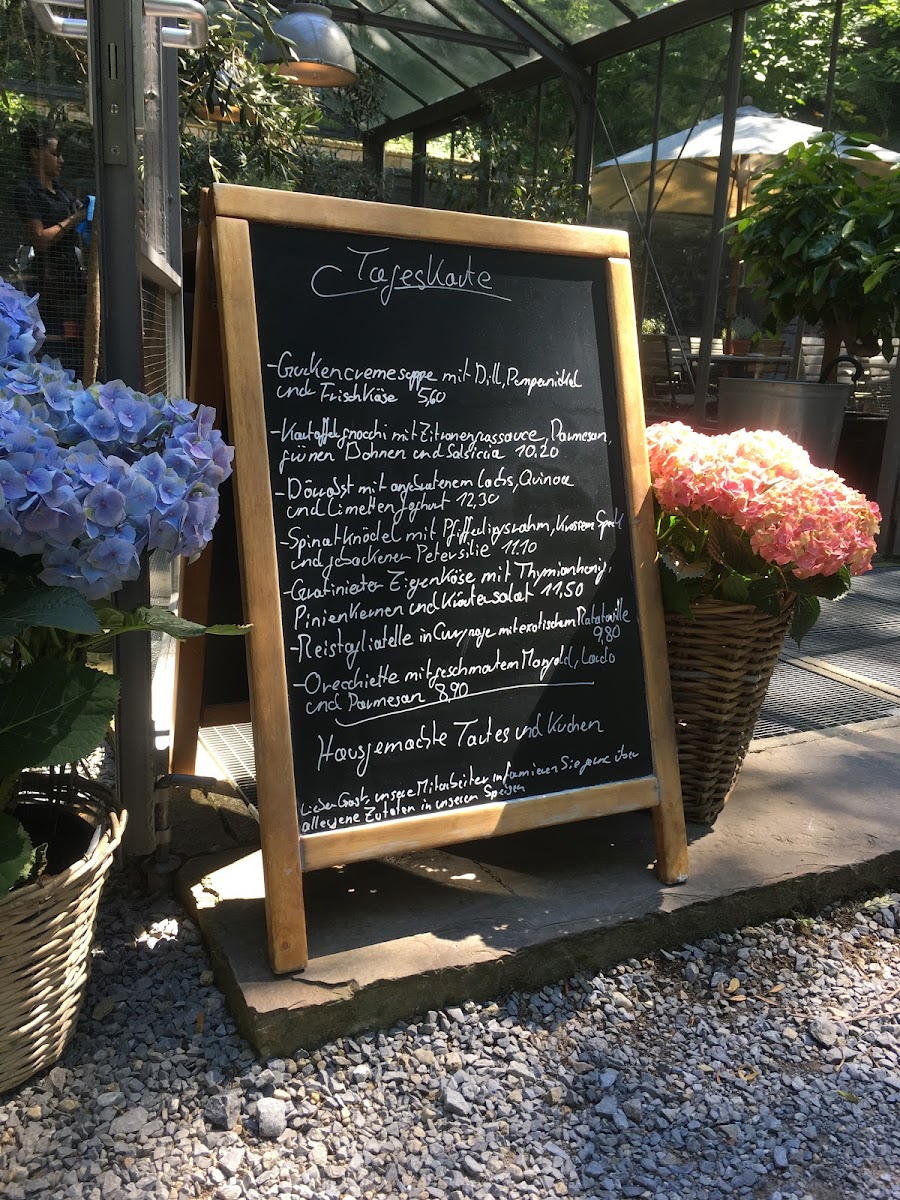 Tageskarte
-Gurkencremesuppe mit Dill, Pumpernickel
und Frischkäse 5,60
-Kartoffelgnocchi mit Zitronengrassauce, Parmesan,
grünen Bohnen und Salsiccia 10,20
-Döwobst mit angebratenem Lachs, Quinoa
und Limettenjoghurt 12,30
-Spinatknödel mit Pfifferlingsrahm, Krossem Speck
und gebackener Petersilie 11,10
-Gratinierter Zigenkäse mit Thymianhonig,
Pinienkernen und Kräutersalat 11,50
-Reistagliatelle in Curry mit exotischem Ratatouille
9,80
-Orecchiette mit geschmortem Mangold, Lardo
und Parmesan 8,90
Hausgemachte Tartes und Kuchen
Lieber Gast, unsere Mitarbeiter informieren Sie gerne über
allergene Zutaten in unseren Speisen